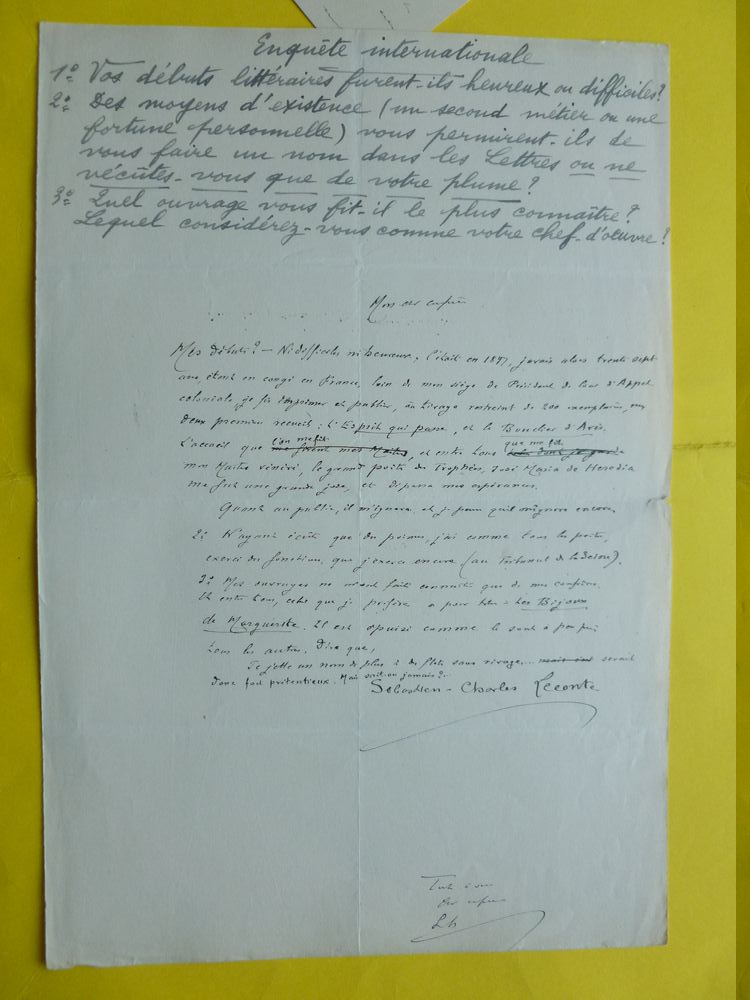 Enquête internationale
1º Vos débuts littéraires furent-ils heureux ou difficiles?
2º Des moyens d'existence (un second métier ou une
fortune personnelle) vous permirent-ils de
vous faire un nom dans les Lettres ou ne
vécûtes-vous que de votre plume?
3º Quel ouvrage vous fit-il le plus connaître?
Lequel considérez-vous comme votre chef-d'œuvre?
Mon cher confrère
Mes débuts? — Ni difficiles ni heureux; c'était en 1897, j'avais alors trente sept
ans, étant en congé en France, loin de mon siège de Président de Cour d'Appel
coloniale, je fis imprimer et publier, au tirage restreint de 200 exemplaires, mes
deux premiers recueils: L'Esprit qui passe, et le Bouclier d'Arès.
L'accueil que l'on me fit me firent mes Maîtres, et entre tous que me fit
mon Maître vénéré, le grand poète des Trophées, José Maria de Heredia
me fut une grande joie, et dépassa mes espérances.
Quant au public, il m'ignora et je pense qu'il m'ignore encore.
2º N'ayant écrit que des poèmes, j'ai comme tous les poètes,
exercé des fonctions, que j'exerce encore (au Tribunal de la Seine).
3º Mes ouvrages ne m'ont fait connaître que de mes confrères.
Et entre tous, celui que je préfère a pour titre: Les Bijoux
de Marguerite. Il est épuisé comme le sont à peu près
tous les autres. Dire que,
Je jette un nom de plus à des flots sans rivage... mais ceci serait
donc fort prétentieux. Mais sait-on jamais?...
Sébastien-Charles Leconte
Tout à vous
cher confrère